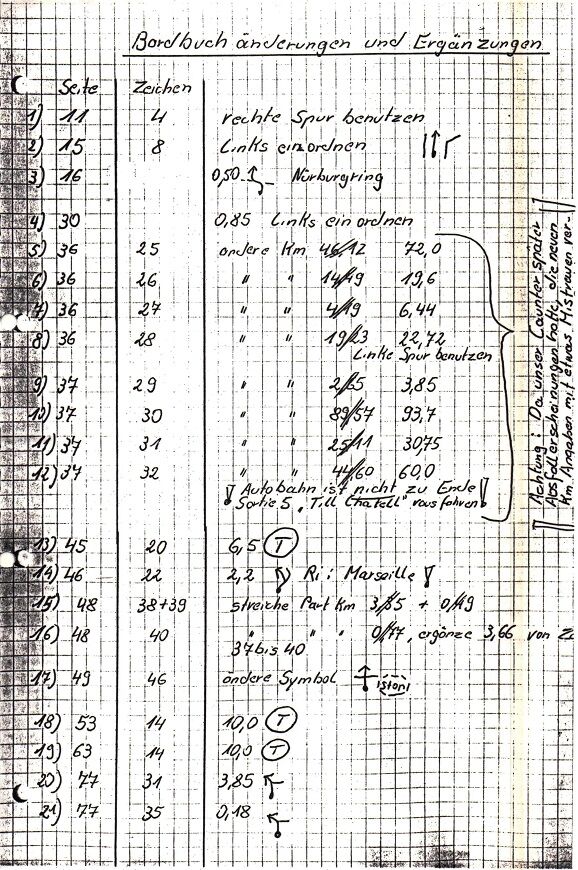 Bordbuch änderungen und Ergänzungen
Seite Zeichen
1) 11 4 rechte Spur benutzen
2) 15 8 Links einordnen
3) 16 0,50 Nürburgring
4) 30 0,85 Links einordnen
5) 36 25 andere Km 46,12 72,0
6) 36 26 " " 14,19 19,6
7) 36 27 " " 4,19 6,44
8) 36 28 " " 19,23 22,72
Linke Spur benutzen
9) 37 29 " " 2,65 3,85
10) 37 30 " " 89,57 93,7
11) 37 31 " " 25,11 30,75
12) 37 32 " " 44,60 60,0
! Autobahn ist nicht zu Ende !
Sortie 5 "Till Chatell" rausfahren
Achtung: Da unser Counter später
Absfallerscheinungen hatte, die neuen
Km Angaben mit etwas Mistrauen ver-
13) 45 20 6,5 T
14) 46 22 2,2 Ri: Marseille !
15) 48 38+39 streiche Part Km 3,85 + 0,49
16) 48 40 " " " 0,77, ergänze 3,66 von
37 bis 40
17) 49 46 ändere Symbol
18) 53 14 10,0 T
19) 63 14 10,0 T
20) 77 31 3,85
21) 77 35 0,18